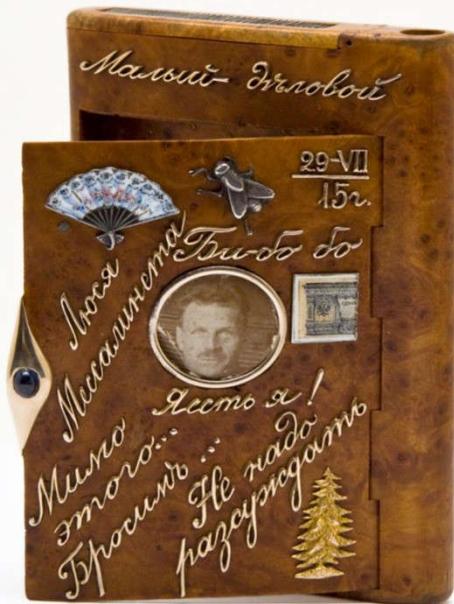 Малый- дѣловой
29-VII
15г.
Би-бо бо
Люся
Мессалинста
Я есть я!
Мимо
этого...
Бросимъ...
Не надо
разсуждать